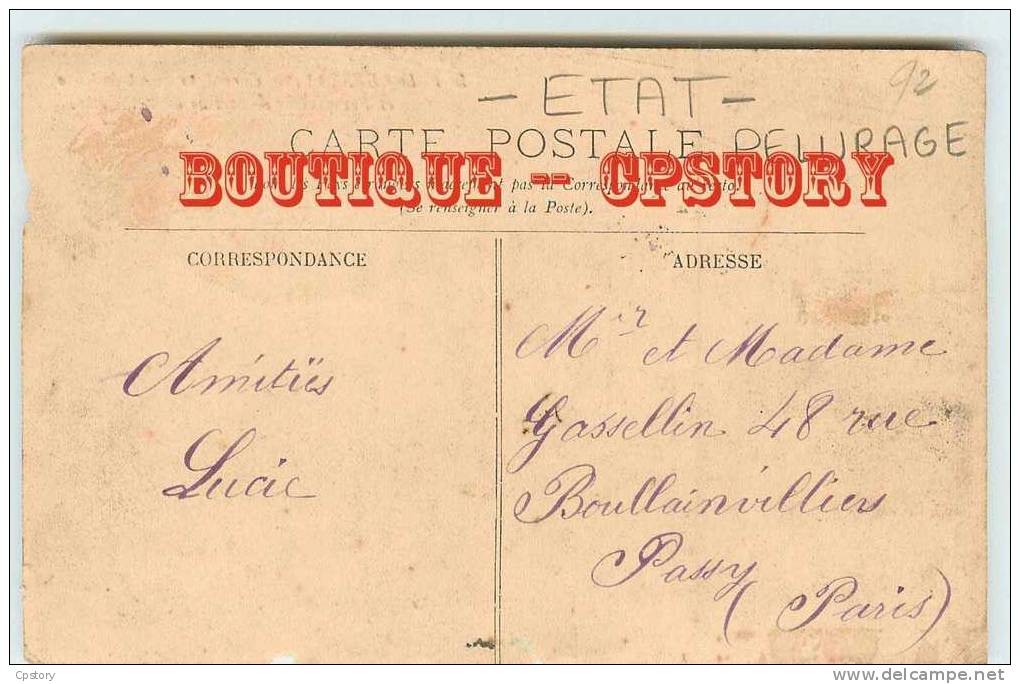 92
- ETAT -
CARTE POSTALE PELURAGE
BOUTIQUE -- CPSTORY
pas la
(Se renseigner à la Poste).
CORRESPONDANCE
ADRESSE
Amitiés
Lucie
Mr et Madame
Gassellin 48 rue
Boullainvilliers
Passy
(Paris)
Cpstory
www.delcampe.net